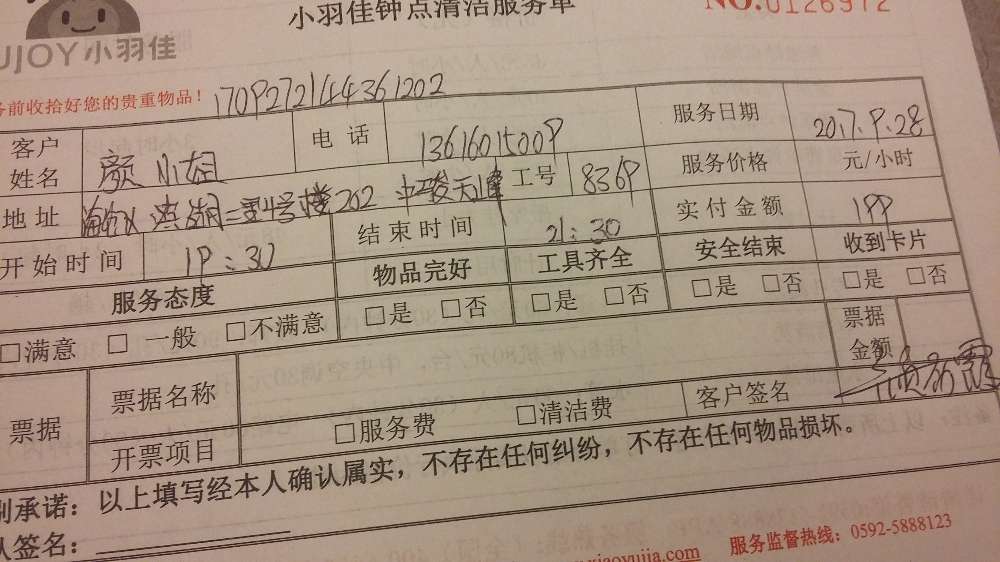 小羽佳钟点清洁服务单 NO.0126972
UJOY小羽佳
务前收拾好您的贵重物品! 1709272144361202
客户姓名 颜小姐 电话 13616015009 服务日期 2017.9.28
服务价格 元/小时
地址 洪湖二里4号楼202 中骏天峰 工号 8369 实付金额 199
开始时间 19:30 结束时间 21:30
服务态度 物品完好 工具齐全 安全结束 收到卡片
□满意 □一般 □不满意 □是 □否 □是 □否 □是 □否 □是 □否
票据 票据名称 票据金额
开票项目 □服务费 □清洁费 客户签名
别承诺：以上填写经本人确认属实，不存在任何纠纷，不存在任何物品损坏。
人签名：
xiaoyujia.com 服务监督热线：0592-5888123